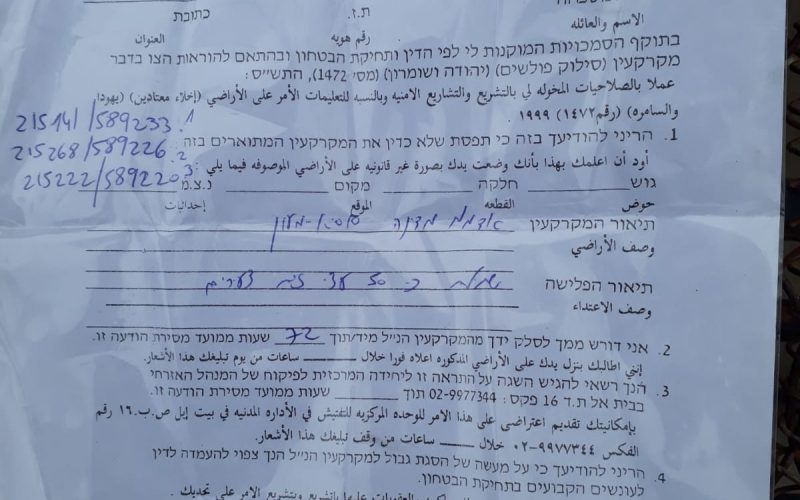 ת.ז.
כתובת
الاسم والعائله
رقم هويه
العنوان
בתוקף הסמכויות המוקנות לי לפי הדין ותחיקת הבטחון ובהתאם להוראות הצו בדבר
מקרקעין (סילוק פולשים) (יהודה ושומרון) (מס' 1472), התשי"ס:
عملا بالصلاحيات المخوله لي بالتشريع والتشاريع الامنيه وبالنسبه للتعليمات الأمر على الأراضي (إخلاء معتادين) (يهودا
والسامره) (رقم ١٤٧٢) ١٩٩٩ .
215141/589233 .1
215268/589226 .2
215222/589220 3
1. הריני להודיעך בזה כי תפסת שלא כדין את המקרקעין המתוארים בזה
أود أن اعلمك بهذا بأنك وضعت يدك بصورة غير قانونيه على الأراضي الموصوفه فيما يلي :
גוש חלקה מקום נ.צ.מ
حوض القطعه الموقع إحداثيات
תיאור המקרקעין אדמת מדינה סוסיא-מעון
وصف الأراضي
תיאור הפלישה נטיעת כ 50 עצי זית צעירים
وصف الاعتداء
2. אני דורש ממך לסלק ידך מהמקרקעין הנ"ל מיד/תוך 72 שעות ממועד מסירת הודעה זו.
إنني اطالبك بنزل يدك على الأراضي المذكوره اعلاه فورا خلال ساعات من يوم تبليغك هذا الأشعار.
3. הנך רשאי להגיש השגה על התראה זו ליחידה המרכזית לפיקוח של המנהל האזרחי
בבית אל ת.ד 16 פקס: 02-9977344 תוך שעות ממועד מסירת הודעה זו.
بإمكانيتك تقديم اعتراضي على هذا الامر للوحده المركزيه للتفتيش في الأداره المدنيه في بيت إيل ص.ب.١٦ رقم
الفكس ٩٩٧٧٣٤٤-٠٢ خلال ساعات من وقف تبليغك هذا الأشعار.
4. הריני להודיעך כי על מעשה של הסגת גבול למקרקעין הנ"ל הנך צפוי להעמדה לדין
לעונשים הקבועים בתחיקת הבטחון.